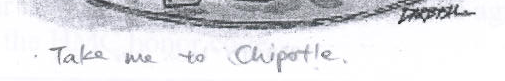 · Take me to Chipotle.